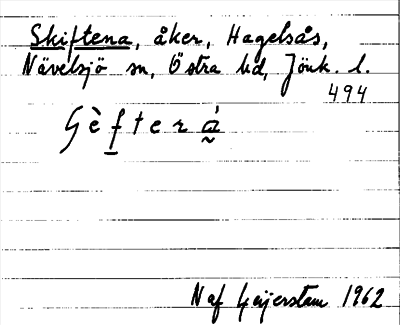 Skiftena, åker, Hagelsås,
Nävelsjö sn, Östra hd, Jönk. l.
494
N af Geijerstam 1962